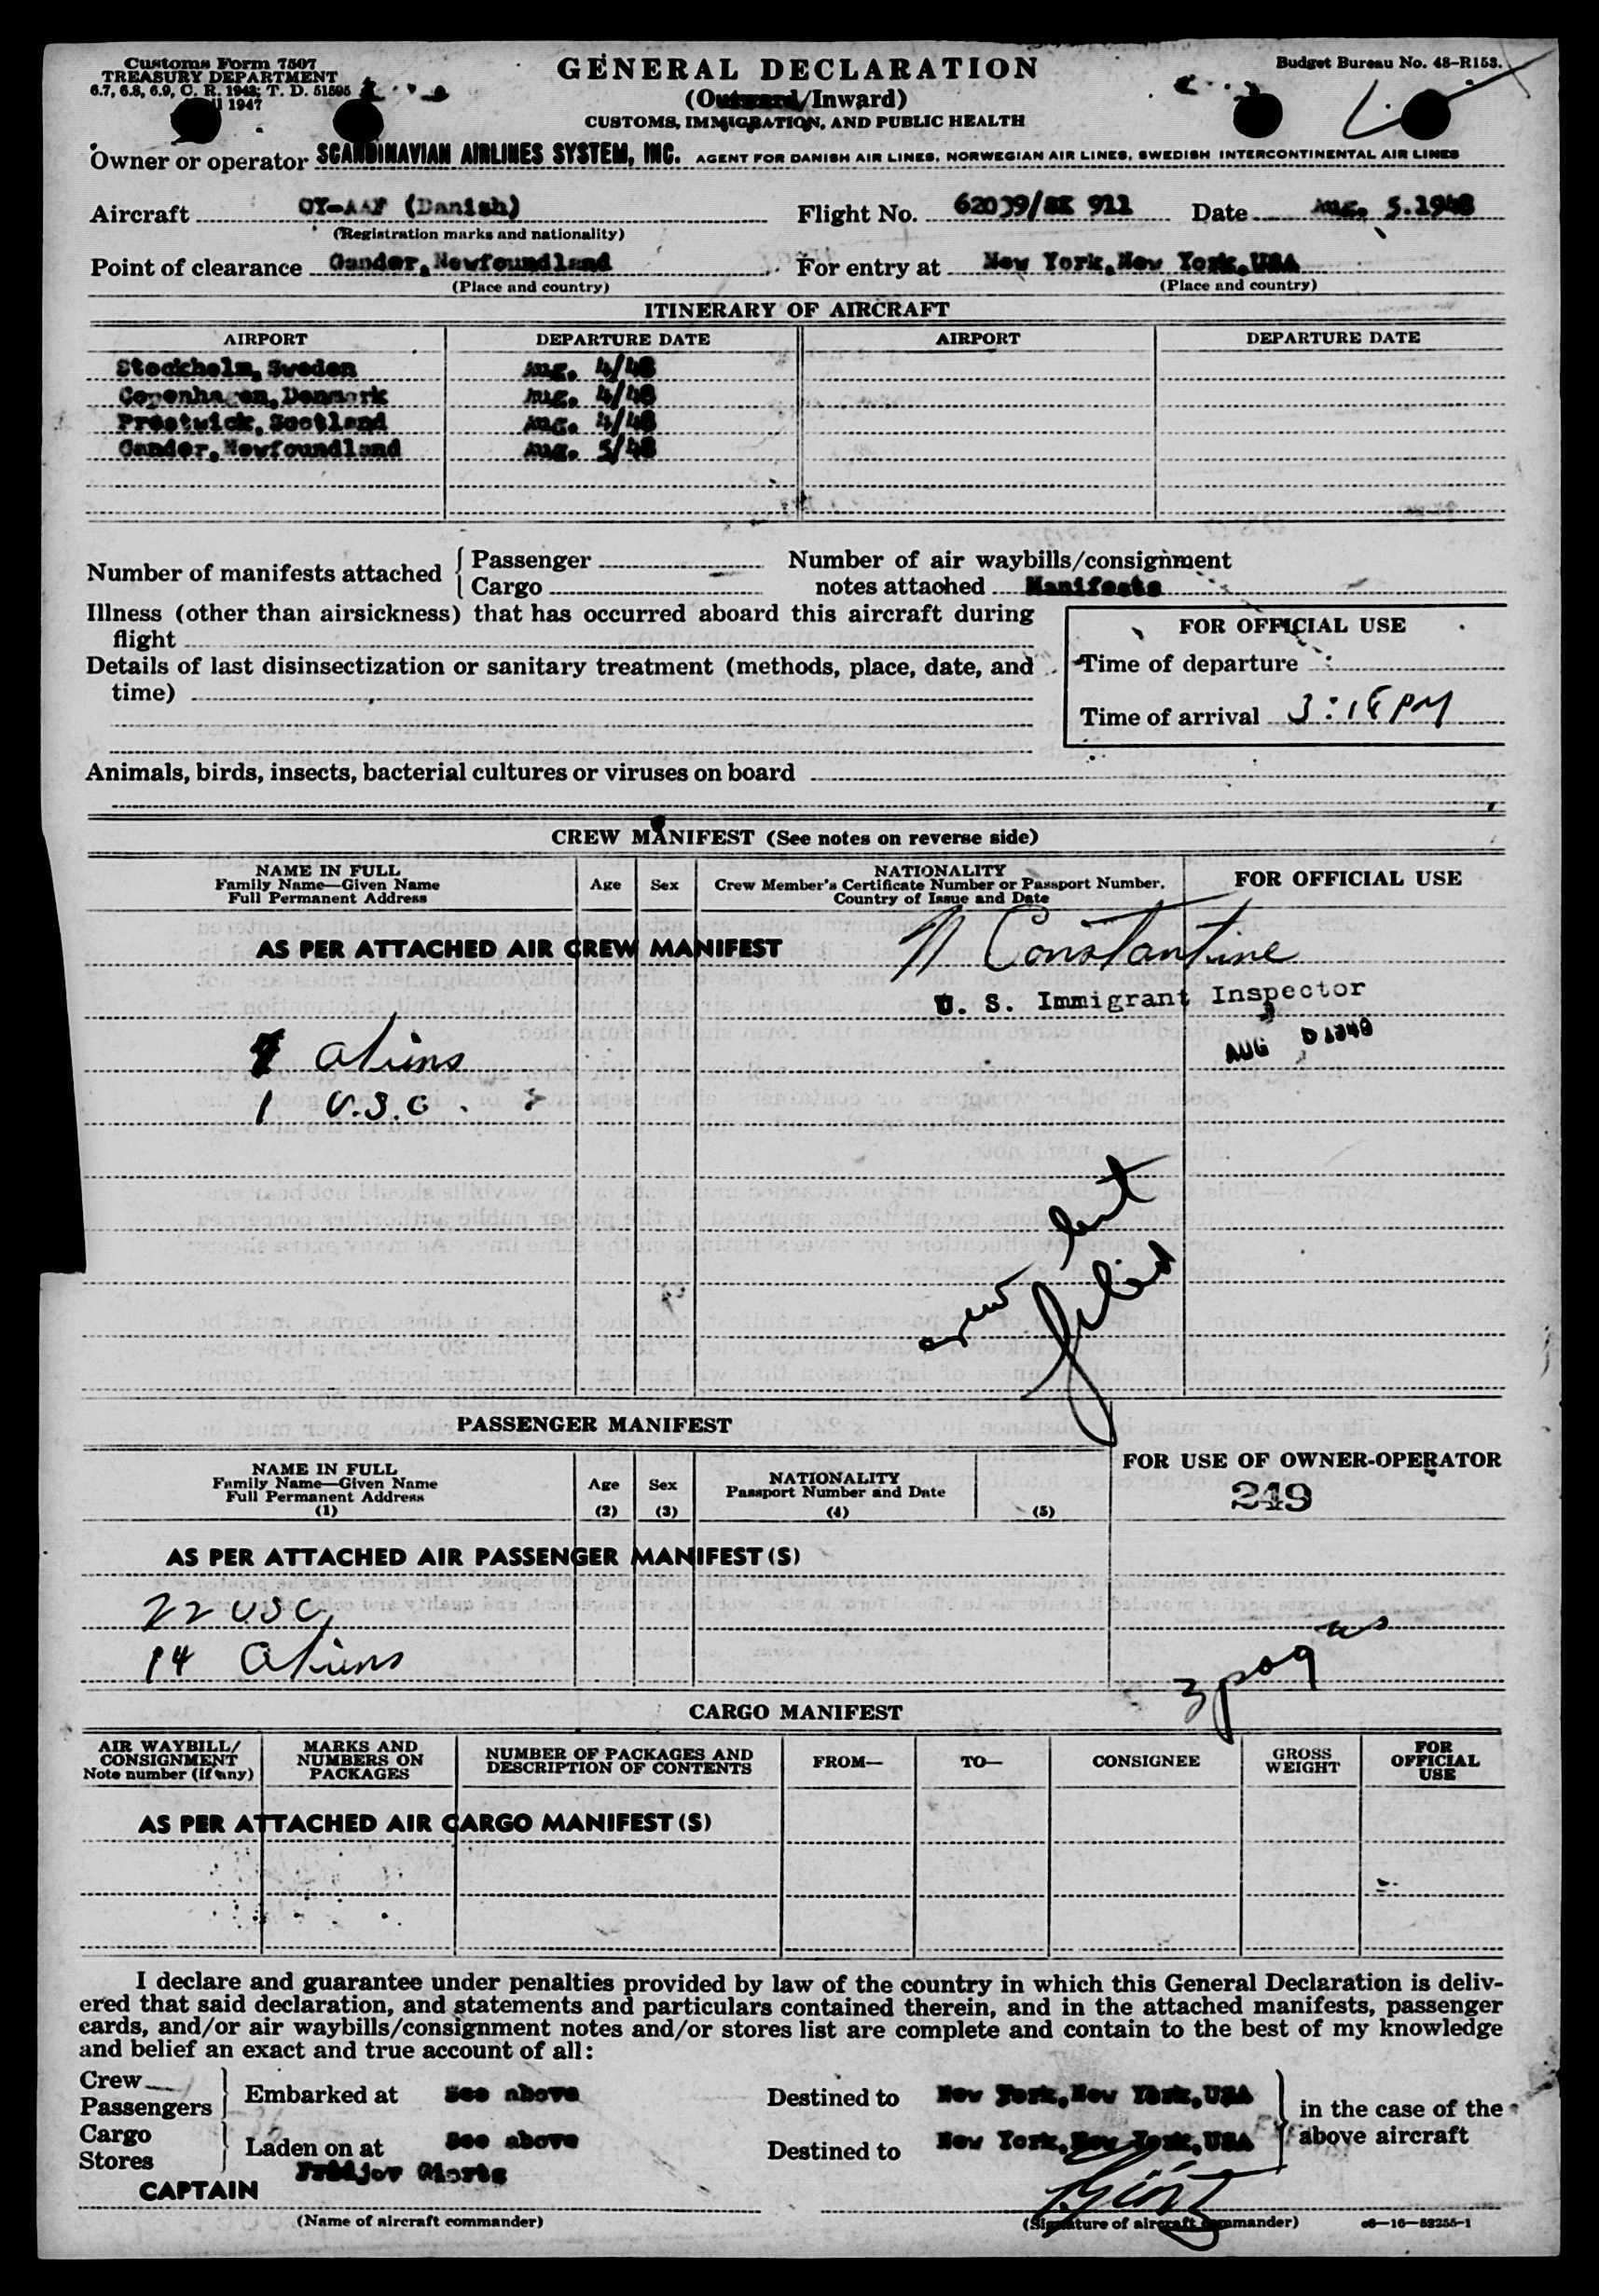 Customs Form 7507
TREASURY DEPARTMENT
6.7, 6.8, 6.9, C. R. 1943; T. D. 51595
1947
GENERAL DECLARATION
(Outward/Inward)
CUSTOMS, IMMIGRATION, AND PUBLIC HEALTH
Budget Bureau No. 48-R153.
Owner or operator SCANDINAVIAN AIRLINES SYSTEM, INC. AGENT FOR DANISH AIR LINES, NORWEGIAN AIR LINES, SWEDISH INTERCONTINENTAL AIR LINES
Aircraft OY-AAF (Danish) Flight No. 62039/SK 911 Date Aug. 5.1948
(Registration marks and nationality)
Point of clearance Gander, Newfoundland For entry at New York, New York, USA
(Place and country) (Place and country)
ITINERARY OF AIRCRAFT
AIRPORT DEPARTURE DATE AIRPORT DEPARTURE DATE
Stockholm, Sweden Aug. 4/48
Copenhagen, Denmark Aug. 4/48
Prestwick, Scotland Aug. 4/48
Gander, Newfoundland Aug. 5/48
Number of manifests attached { Passenger
Cargo
Number of air waybills/consignment
notes attached Manifests
Illness (other than airsickness) that has occurred aboard this aircraft during
flight
Details of last disinsectization or sanitary treatment (methods, place, date, and
time)
FOR OFFICIAL USE
Time of departure
Time of arrival 3:18 PM
Animals, birds, insects, bacterial cultures or viruses on board
CREW MANIFEST (See notes on reverse side)
NAME IN FULL
Family Name—Given Name
Full Permanent Address
Age
Sex
NATIONALITY
Crew Member's Certificate Number or Passport Number,
Country of Issue and Date
FOR OFFICIAL USE
AS PER ATTACHED AIR CREW MANIFEST
N Constantine
U. S. Immigrant Inspector
AUG
aliens
1 U.S.C.
crew list
filed
PASSENGER MANIFEST
NAME IN FULL
Family Name—Given Name
Full Permanent Address
(1)
Age
(2)
Sex
(3)
NATIONALITY
Passport Number and Date
(4)
(5)
FOR USE OF OWNER-OPERATOR
249
AS PER ATTACHED AIR PASSENGER MANIFEST(S)
22 USC
14 Aliens
3 pages
CARGO MANIFEST
AIR WAYBILL/
CONSIGNMENT
Note number (if any)
MARKS AND
NUMBERS ON
PACKAGES
NUMBER OF PACKAGES AND
DESCRIPTION OF CONTENTS
FROM—
TO—
CONSIGNEE
GROSS
WEIGHT
FOR
OFFICIAL
USE
AS PER ATTACHED AIR CARGO MANIFEST(S)
I declare and guarantee under penalties provided by law of the country in which this General Declaration is deliv-
ered that said declaration, and statements and particulars contained therein, and in the attached manifests, passenger
cards, and/or air waybills/consignment notes and/or stores list are complete and contain to the best of my knowledge
and belief an exact and true account of all:
Crew
Passengers } Embarked at See above Destined to New York, New York, USA
Cargo
Stores } Laden on at See above Destined to New York, New York, USA
in the case of the
above aircraft
CAPTAIN
(Name of aircraft commander) (Signature of aircraft commander)